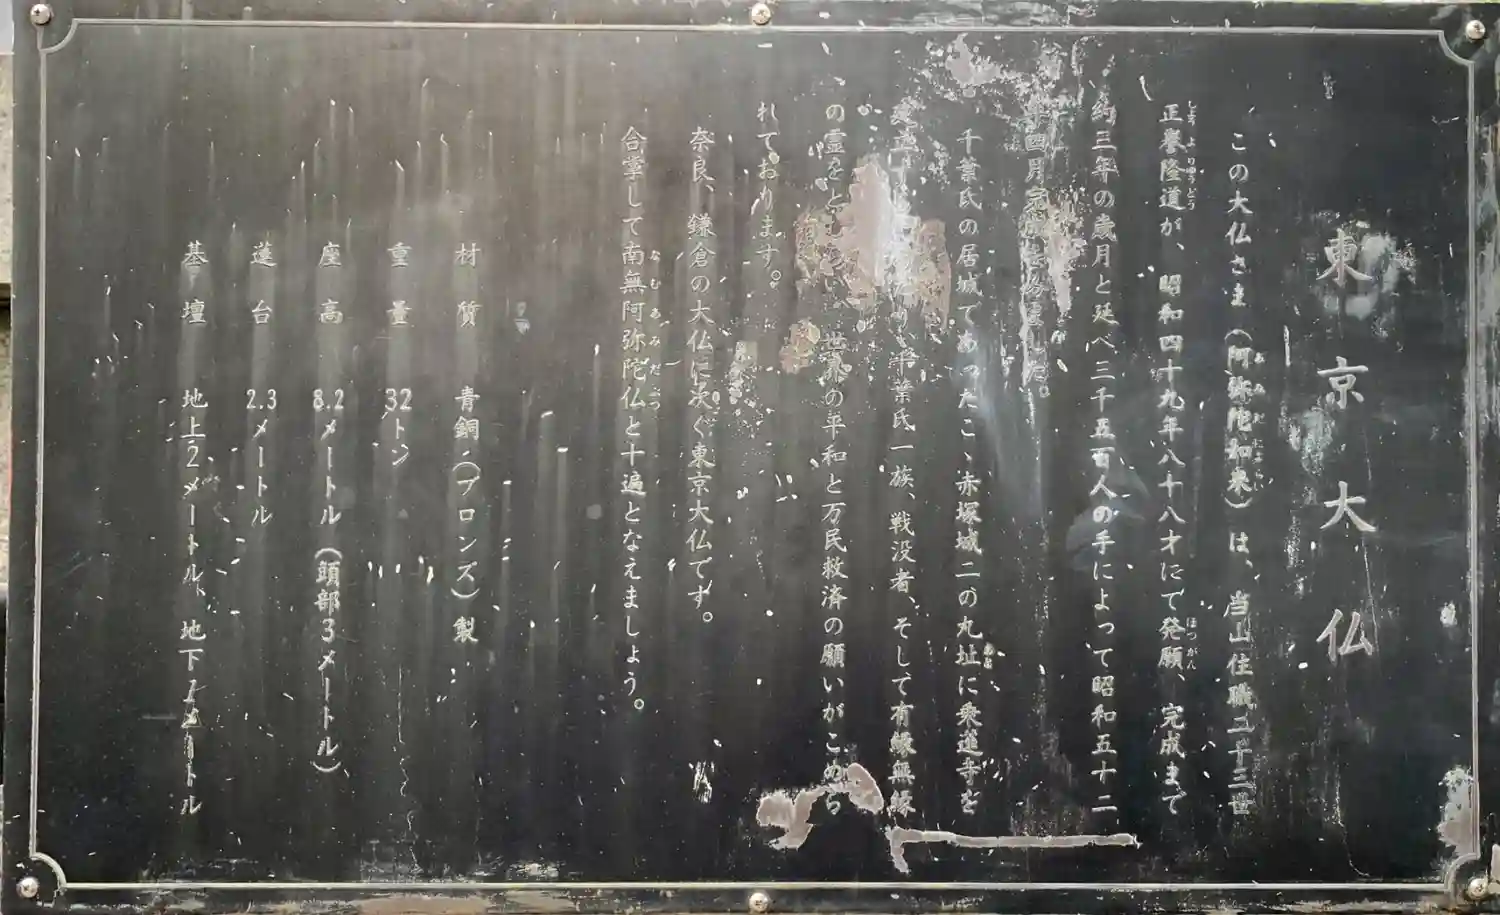 東京大仏
この大仏さま(阿弥陀如来)は、当山住職二十三世
正誉隆道が、昭和四十九年八十八才にて発願、完成まで
約三年の歳月と延べ三千五百人の手によって昭和五十二
年四月完成
千葉氏の居城であったこゝ赤塚城二の丸址に乗蓮寺を
建立千葉氏一族、戦没者、そして有縁無縁
の霊をと世界の平和と万民救済の願いがこめら
れております。
奈良、鎌倉の大仏に次ぐ東京大仏です。
合掌して南無阿弥陀仏と十遍となえましょう。
材質 青銅(ブロンズ)製
重量 32トン
座高 8.2メートル(頭部3メートル)
蓮台 2.3メートル
基壇 地上2メートル、地下メートル